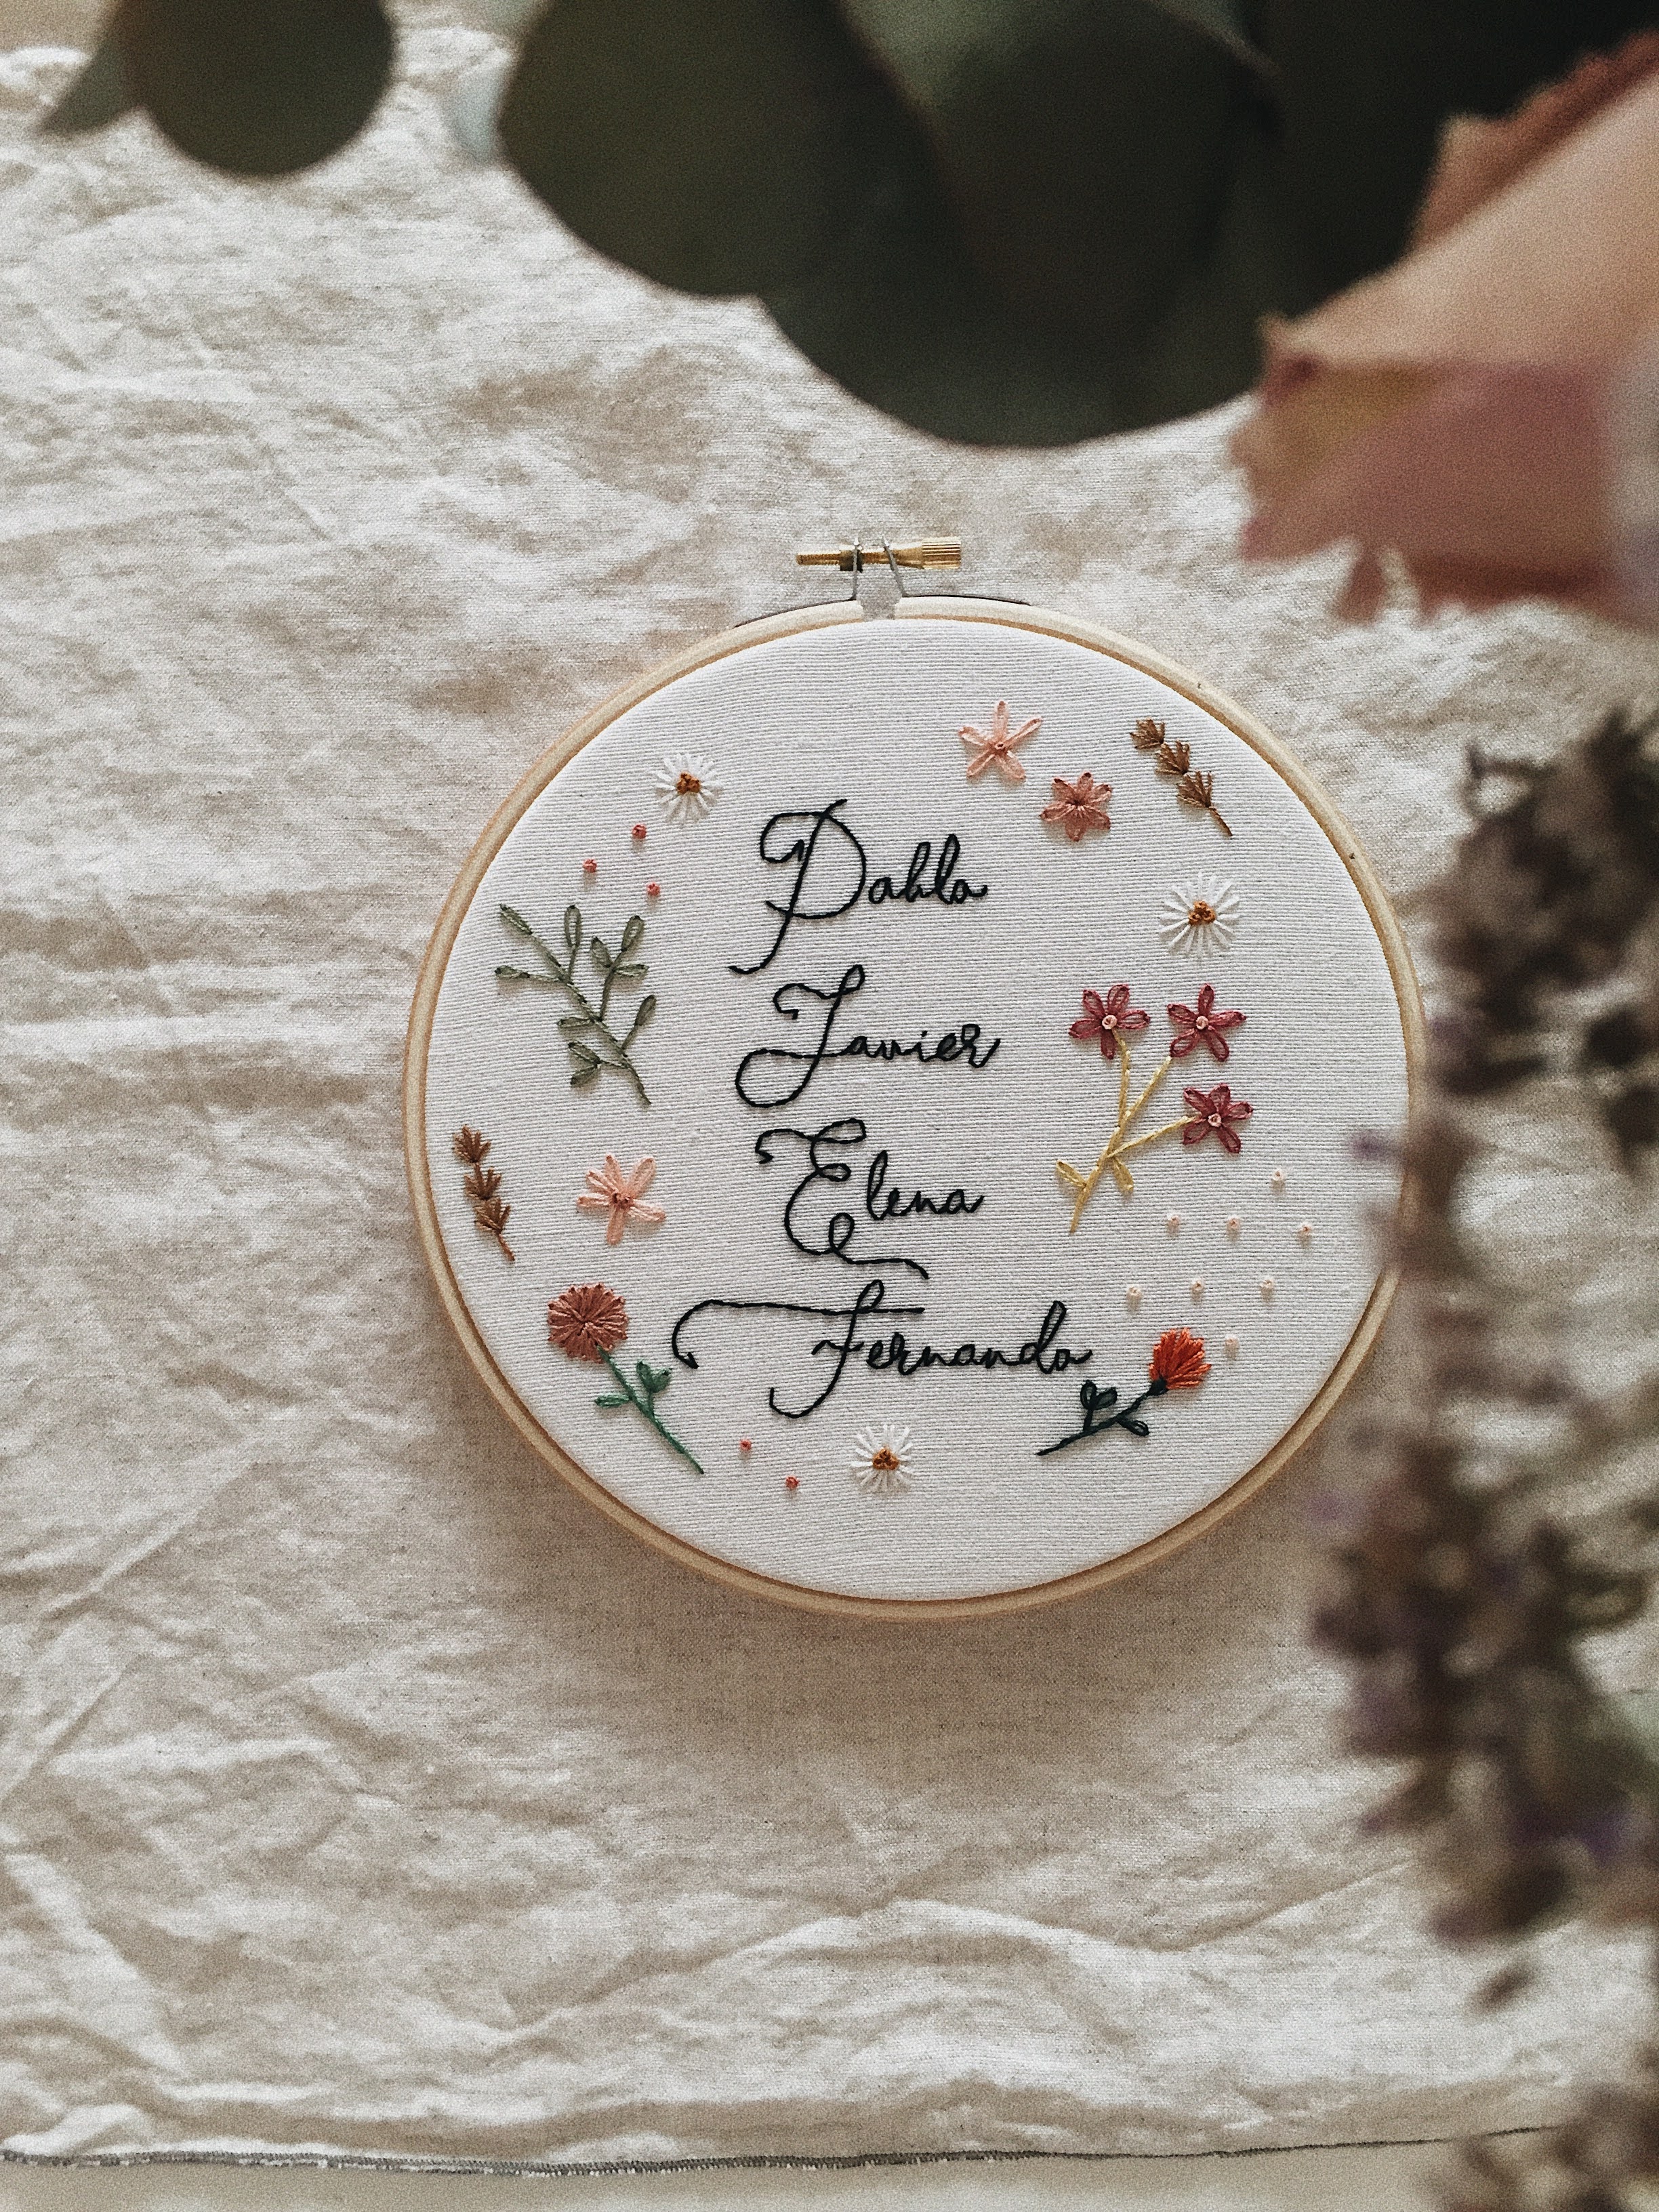 Pablo
Javier
Elena
Fernando